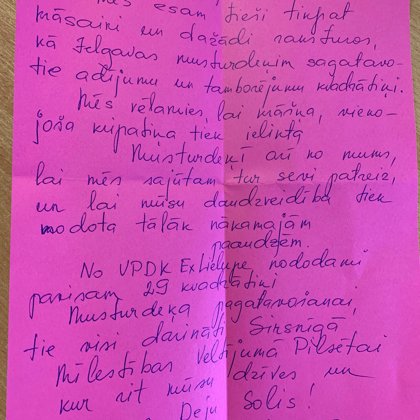 Mēs esam tieši tikpat
māsaini un dažādi raksturos,
kā Jelgavas musturdeķim sagatavo-
tie adījumu un tamborējumu kvadrātiņi.
Mēs vēlamies, lai māsiņa, vieno-
joša kripatiņa tiek ielikta
Musturdeķī arī no mums,
lai mēs sajūtam tur sevi patreiz,
un lai mūsu daudzveidība tiek
nodota tālāk nākamajām
paaudzēm.
No VPDK Ex Lielupe nododami
pavisam 29 kvadrātiņi
Musturdeķa pagatavošanai,
tie visi darināti Sirsnīgā
Mīlestības Veltījumā Pilsētai
kur rit mūsu dzīves un
Deju solis!